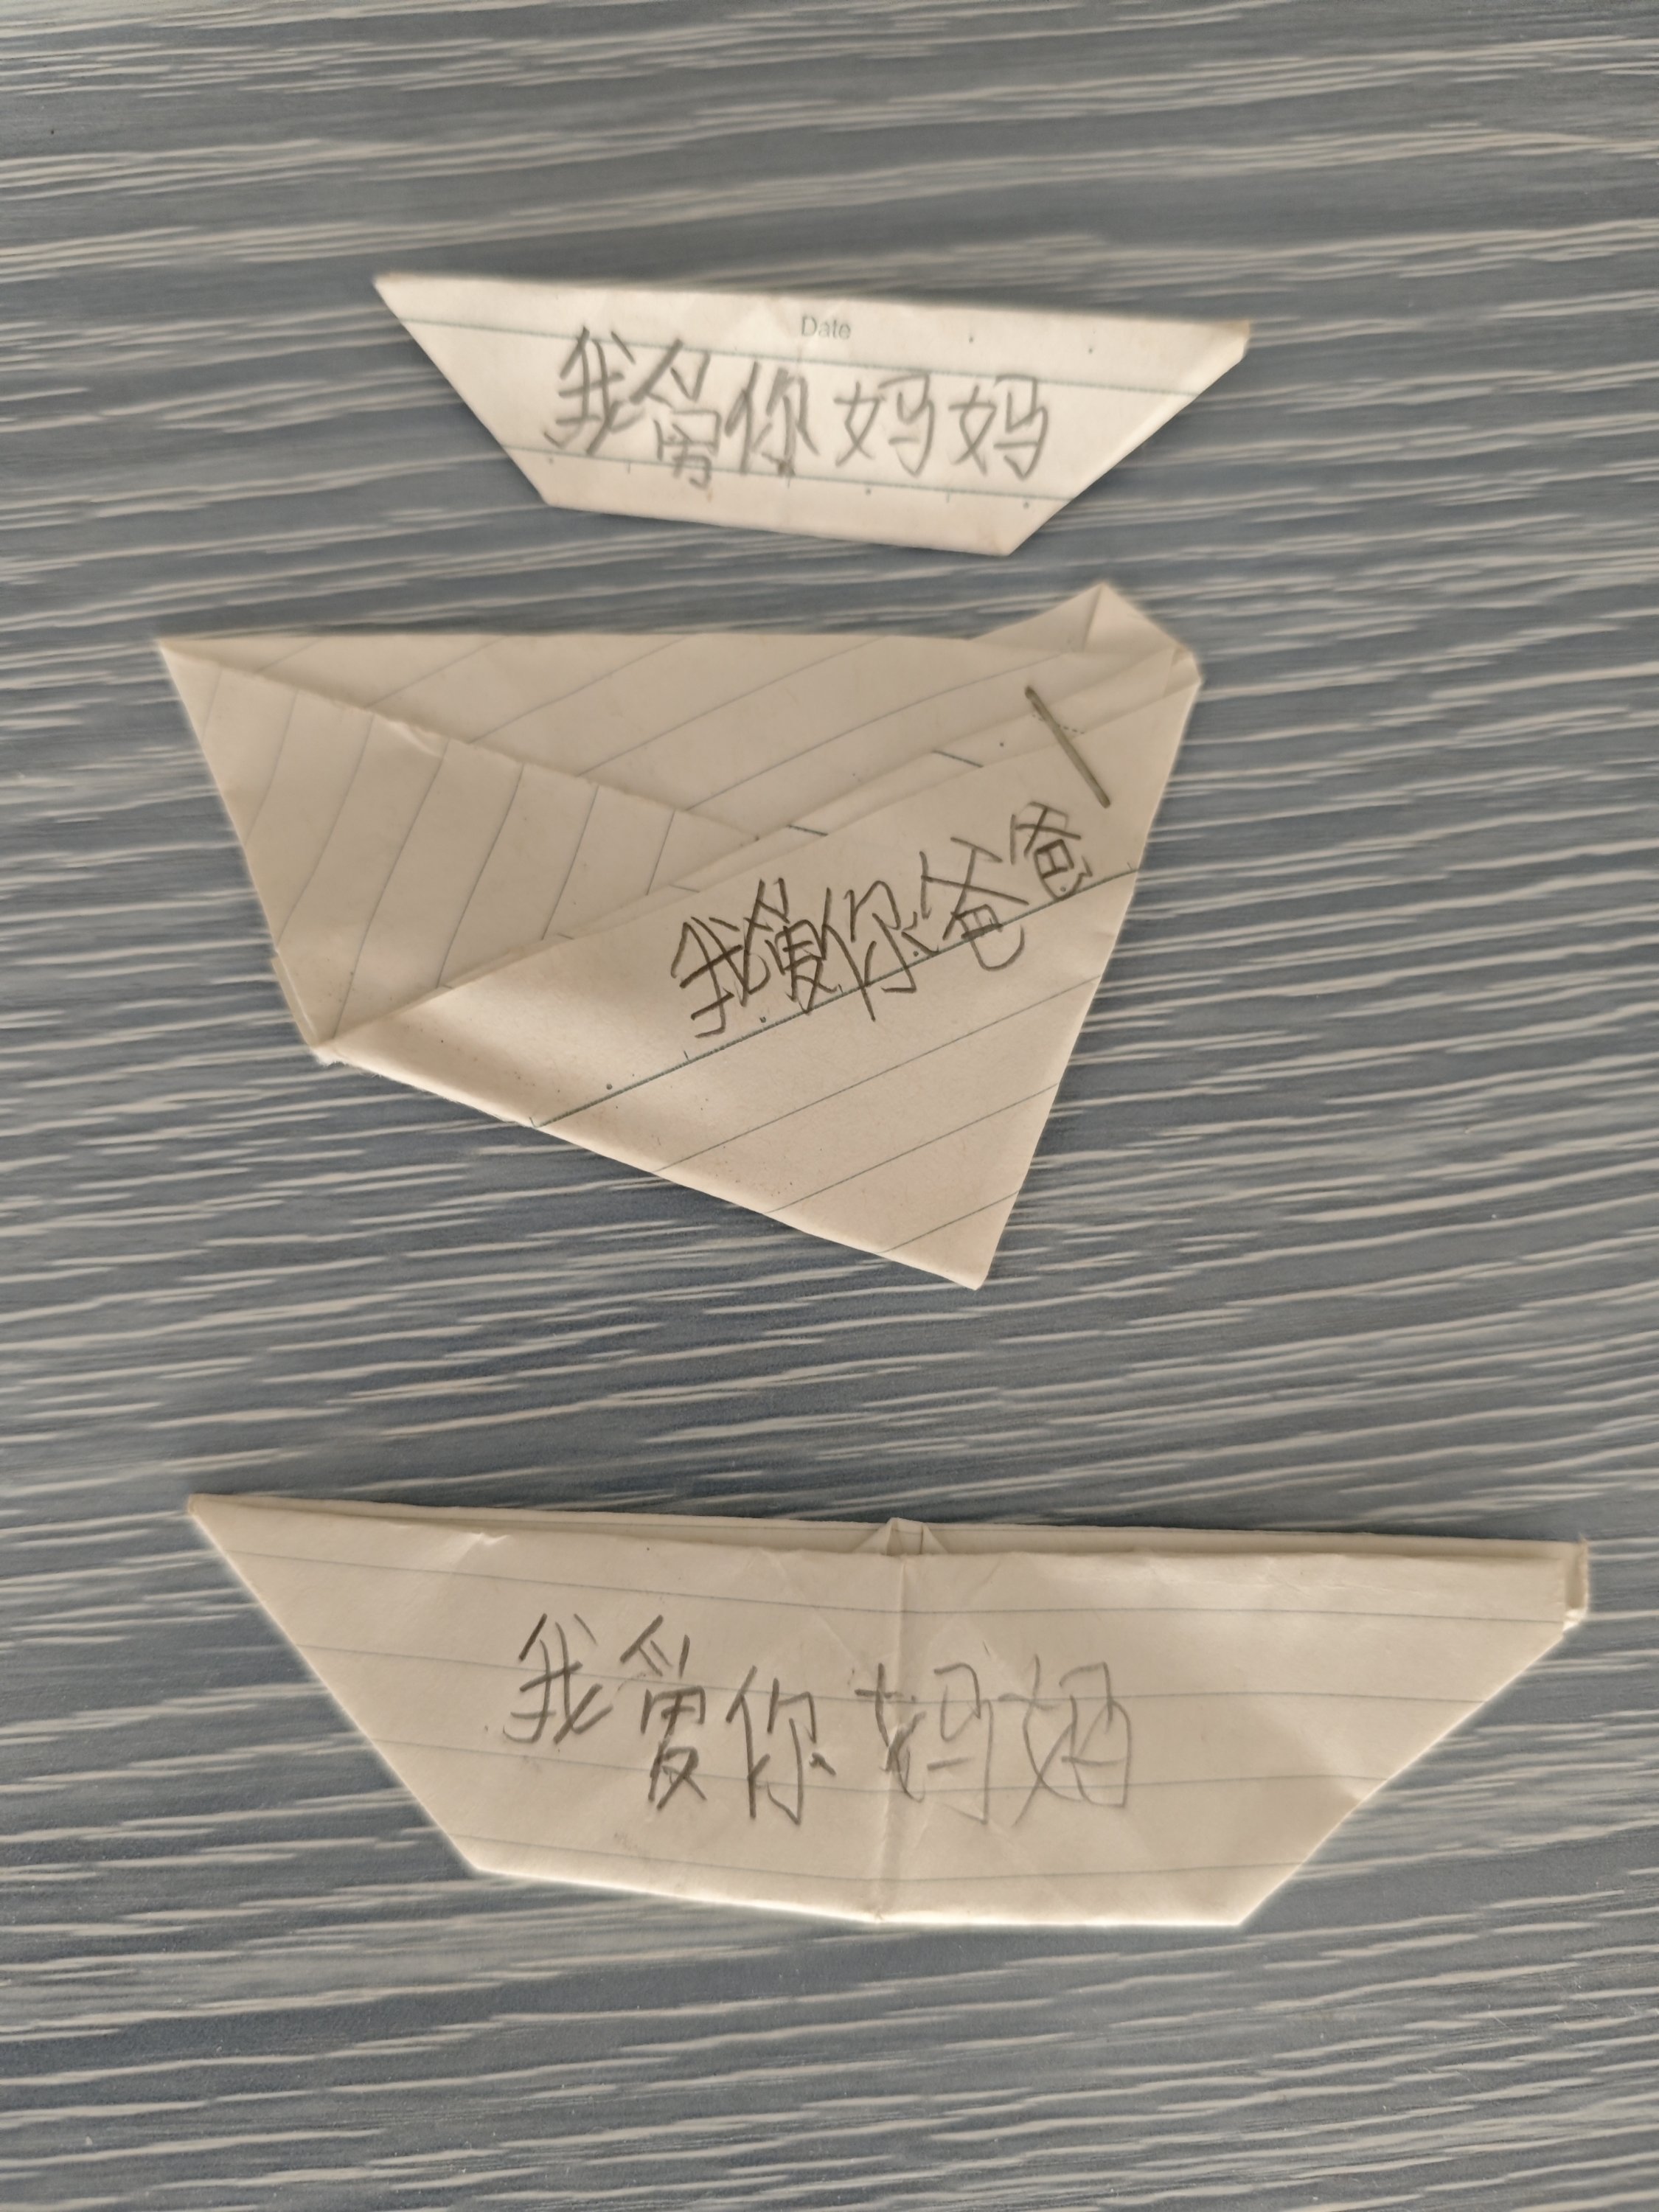 Date
我爱你妈妈
我爱你爸爸
我爱你妈妈